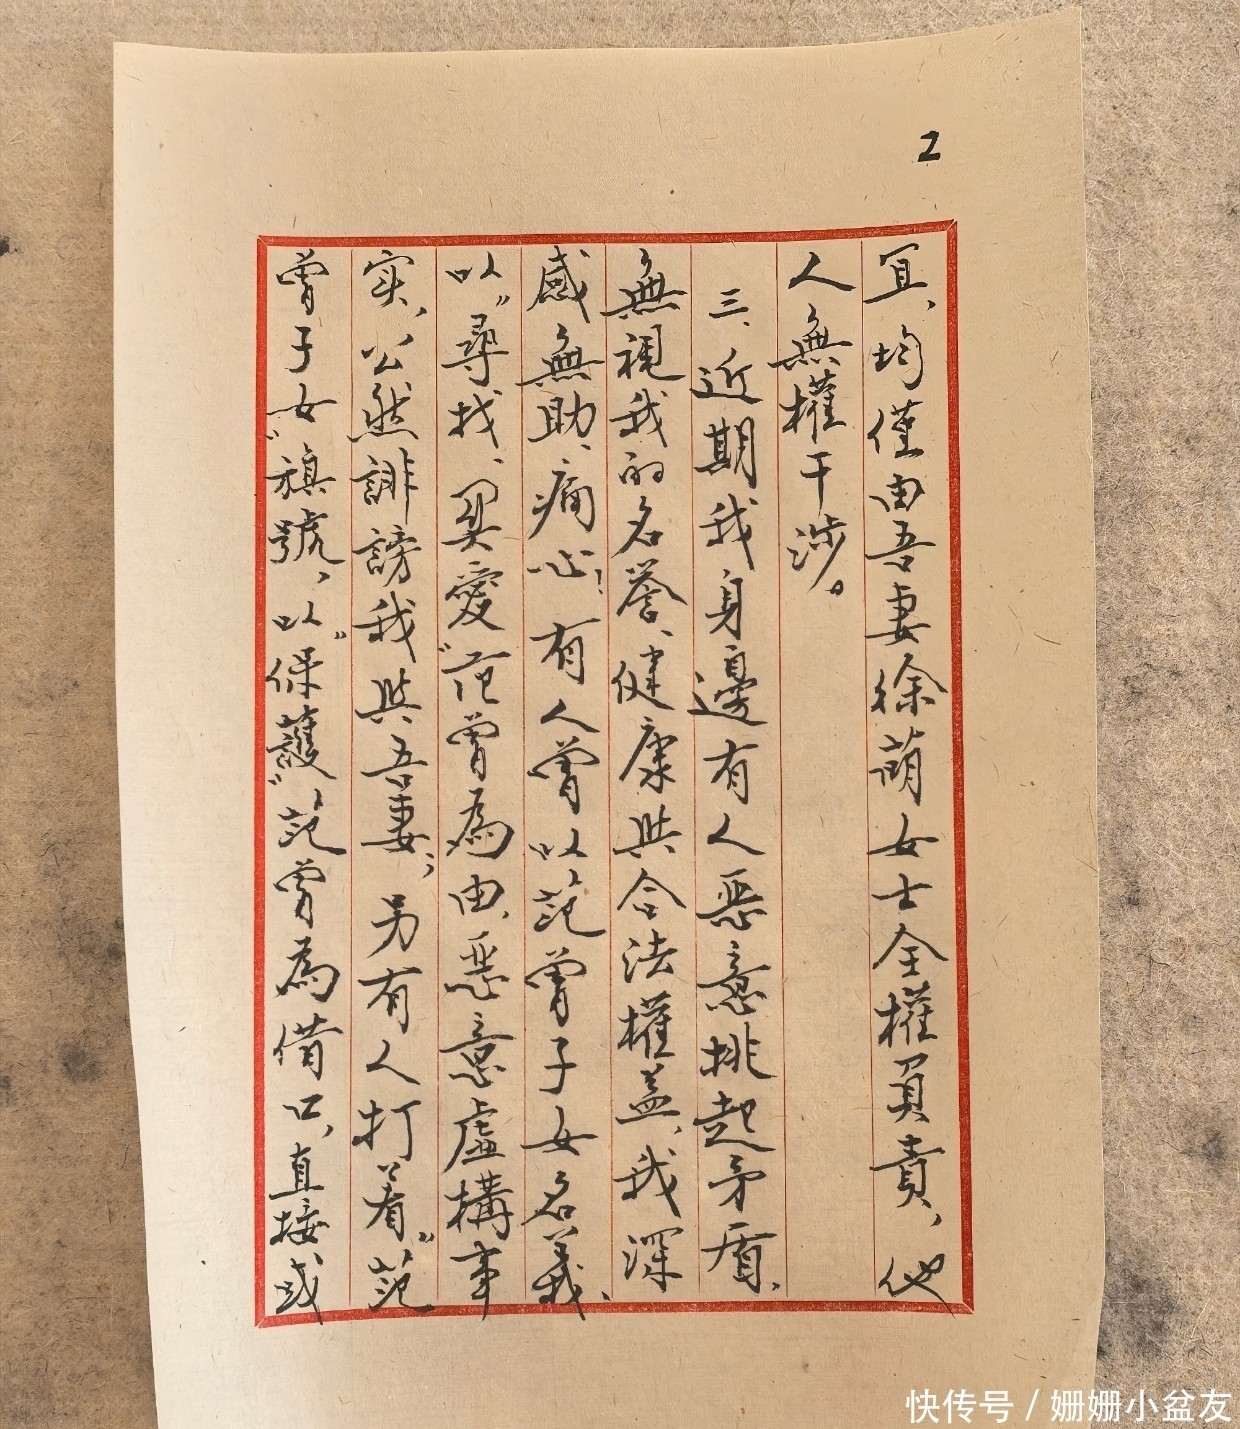 2
宜，均僅由吾妻徐萌女士全權負責，他
人無權干涉。
三、近期我身邊有人惡意挑起矛盾，
無視我的名譽、健康與合法權益，我深
感無助、痛心！有人曾以范曾子女名義、
以“尋找、關愛”范曾為由，惡意虛構事
实，公然誹謗我與吾妻，另有人打着“范
曾子女”旗號，以“保護”范曾為借口，直接或
快传号 / 姗姗小盆友